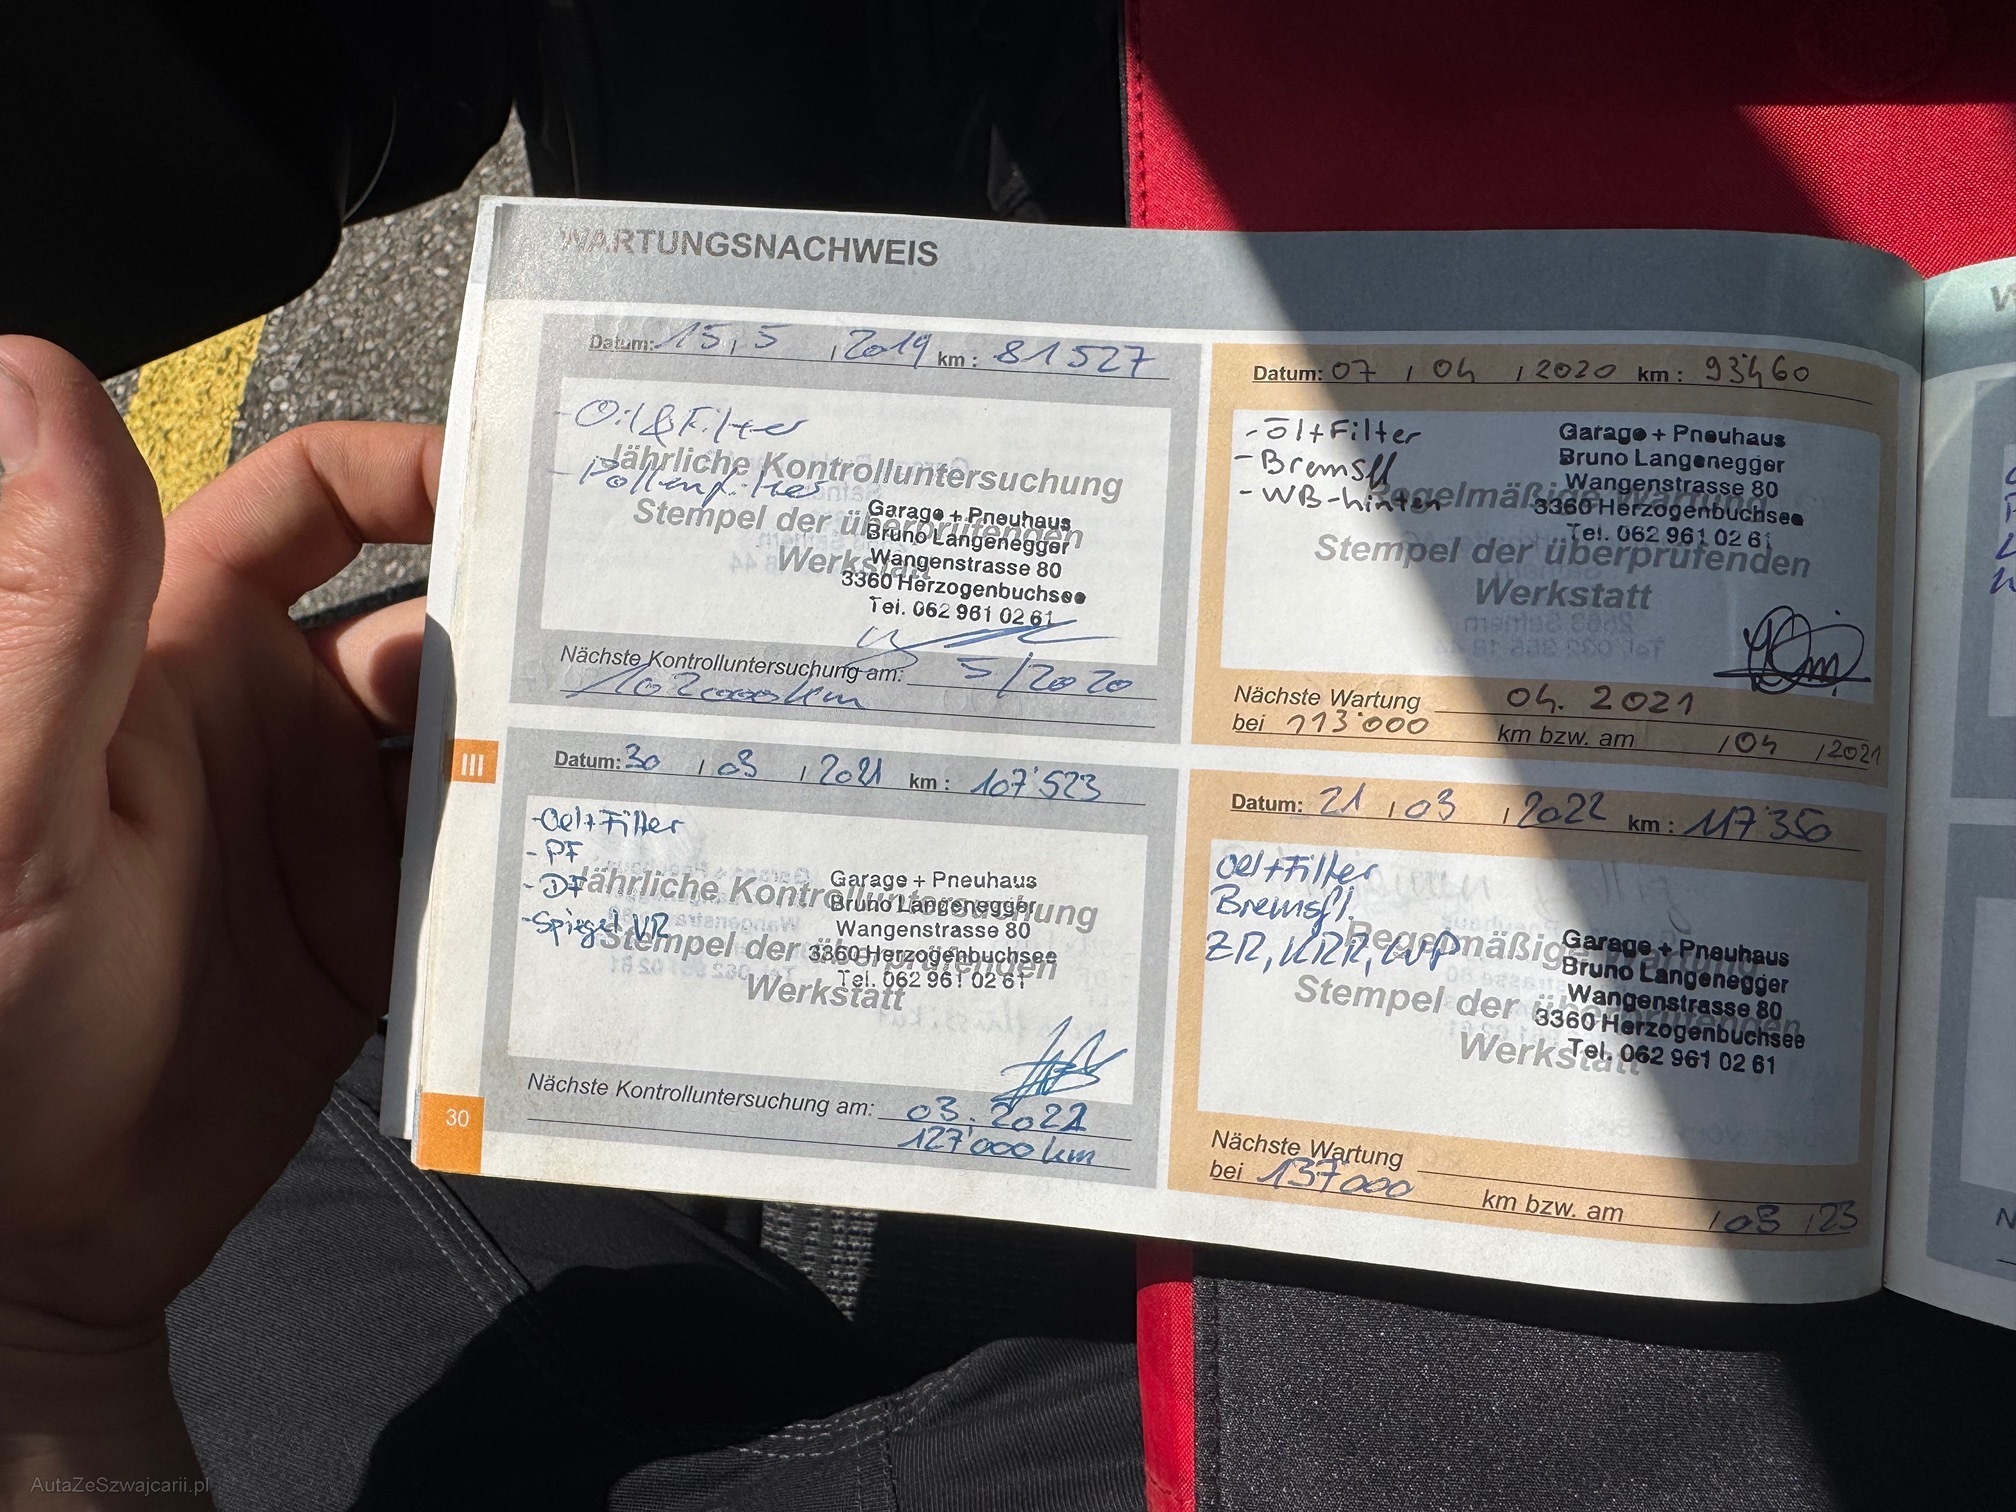 WARTUNGSNACHWEIS
Datum: 15.5 . 2019 km : 81527
- Oil & Filter
- Pollenfilter
Jährliche Kontrolluntersuchung
Stempel der überprüfenden
Werkstatt
Garage + Pneuhaus
Bruno Langenegger
Wangenstrasse 80
3360 Herzogenbuchsee
Tel. 062 961 02 61
Nächste Kontrolluntersuchung am: 5/2020
102000 km
Datum: 07 / 04 / 2020 km : 93'460
- öl + Filter
- Bremsfl
- WB-hinten
Regelmäßige Wartung
Stempel der überprüfenden
Werkstatt
Garage + Pneuhaus
Bruno Langenegger
Wangenstrasse 80
3360 Herzogenbuchsee
Tel. 062 961 02 61
Nächste Wartung 04. 2021
bei 113'000 km bzw. am / 04 / 2021
III
Datum: 30 / 03 / 2021 km : 107'523
- Oel + Filter
- PF
- DF
- Spiegel VR
Jährliche Kontrolluntersuchung
Stempel der überprüfenden
Werkstatt
Garage + Pneuhaus
Bruno Langenegger
Wangenstrasse 80
3360 Herzogenbuchsee
Tel. 062 961 02 61
Nächste Kontrolluntersuchung am: 03. 2022
127'000 km
Datum: 21 / 03 / 2022 km : 117'350
Oel + Filter
Bremsfl.
ZR, KRR, WP
Regelmäßige Wartung
Stempel der überprüfenden
Werkstatt
Garage + Pneuhaus
Bruno Langenegger
Wangenstrasse 80
3360 Herzogenbuchsee
Tel. 062 961 02 61
Nächste Wartung
bei 137'000 km bzw. am / 03 / 23
30
AutaZeSzwajcarii.pl